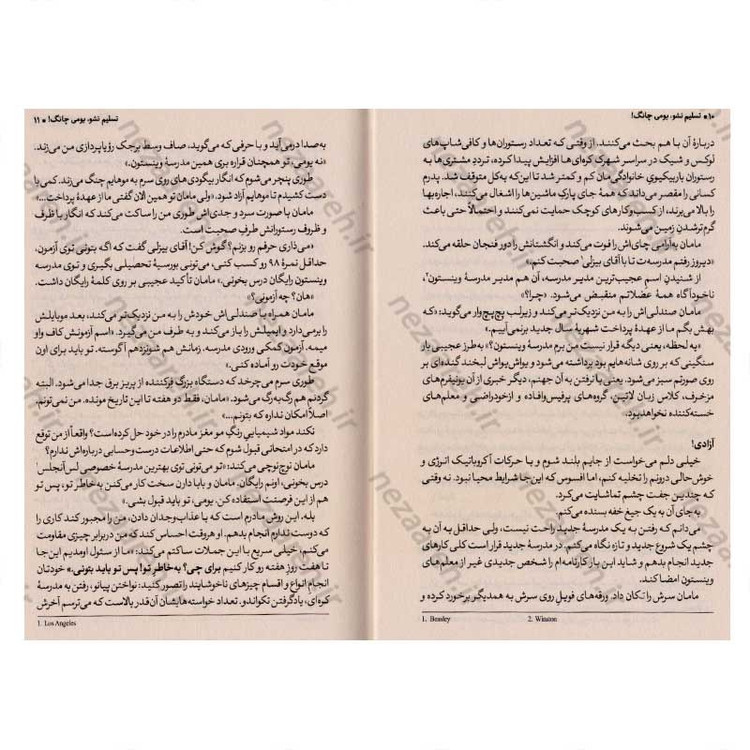 ۱۰ • تسلیم نشو، یومی چانگ!
دربارهٔ آن با هم بحث می‌کنند. از وقتی که تعداد رستوران‌ها و کافی‌شاپ‌های
لوکس و شیک در سراسر شهرک کره‌ای‌ها افزایش پیدا کرده، تردد مشتری‌ها به
رستوران باربیکیوی خانوادگی‌مان کم و کمتر شد تا این‌که به‌کل متوقف شد. پدرم
کسانی را مقصر می‌داند که همهٔ جای پارک ماشین‌ها را اشغال می‌کنند، اجاره‌بها
را بالا می‌برند، از کسب‌وکارهای کوچک حمایت نمی‌کنند و احتمالاً حتی باعث
گرم‌تر شدن زمین می‌شوند.
مامان به‌آرامی چای‌اش را فوت می‌کند و انگشتانش را دور فنجان حلقه می‌کند.
«دیروز رفتم مدرسه‌ت تا با آقای بیزلی۱ صحبت کنم.»
از شنیدن اسم عجیب‌ترین مدیر مدرسه، آن هم مدیر مدرسهٔ وینستون۲،
ناخودآگاه همهٔ عضلاتم منقبض می‌شود. «چرا؟»
مامان صندلی‌اش را به من نزدیک‌تر می‌کند و زیرلب پچ‌پچ‌وار می‌گوید: «که
بهش بگم ما از عهدهٔ پرداخت شهریهٔ سال جدید برنمی‌آییم.»
«یه لحظه، یعنی دیگه قرار نیست من برم مدرسهٔ وینستون؟» به‌طرز عجیبی بار
سنگینی که بر روی شانه‌هایم بود برداشته می‌شود و یواش‌یواش لبخند گنده‌ای بر
روی صورتم سبز می‌شود. یعنی با نرفتن به آن جهنم، دیگر خبری از آن یونیفرم‌های
مزخرف، کلاس زبان لاتین، گروه‌های پرفیس‌وافاده و ازخودراضی و معلم‌های
خسته‌کننده نخواهد بود.
آزادی!
خیلی دلم می‌خواست از جایم بلند شوم و با حرکات آکروباتیک انرژی و
خوش‌حالی درونم را تخلیه کنم، اما افسوس که این‌جا شرایط محیا نبود. نه وقتی
که چندین جفت چشم تماشایت می‌کرد.
به جای آن به یک جیغ خفه بسنده می‌کنم.
می‌دانم که رفتن به یک مدرسهٔ جدید راحت نیست، ولی حداقل به آن به
چشم یک شروع جدید و تازه نگاه می‌کنم. در مدرسهٔ جدید قرار است کلی کارهای
جدید انجام بدهم و شاید این بار کارنامه‌ام را شخص جدیدی غیر از معلم‌های
وینستون امضا کند.
مامان سرش را تکان داد. ورقه‌های فویل روی سرش به همدیگر برخورد کرده و
1. Beasley 2. Winston
تسلیم نشو، یومی چانگ! • ۱۱
به‌صدا درمی‌آید و با حرفی که می‌گوید، صاف وسط برجک رؤیاپردازی من می‌زند.
«نه یومی، تو همچنان قراره بری همین مدرسهٔ وینستون.»
طوری پنچر می‌شوم که انگار بیگودی‌های روی سرم به موهایم چنگ می‌زند. کمی با
دست کشیدم تا موهایم آزاد شود. «ولی مامان تو همین الان گفتی ما از عهدهٔ پرداخت...»
مامان با صورت سرد و جدی‌اش طوری من را ساکت می‌کند که انگار با ظرف
و ظروف رستورانش طرفِ صحبت است.
«می‌ذاری حرفم رو بزنم؟ گوش کن! آقای بیزلی گفت که اگه بتونی توی آزمون،
حداقل نمرهٔ ۹۸ رو کسب کنی، می‌تونی بورسیهٔ تحصیلی بگیری و توی مدرسه
وینستون رایگان درس بخونی.» مامان تأکید عجیبی بر روی کلمهٔ رایگان داشت.
«هان؟ چه آزمونی؟»
مامان همراه با صندلی‌اش خودش را به من نزدیک‌تر می‌کند، بعد موبایلش
را برمی‌دارد و ایمیلش را باز می‌کند و به طرف من می‌گیرد. «اسم آزمونش کاف واو
میمه. آزمون کمکی ورودی مدرسه. زمانش هم شونزدهم آگوسته. تو باید برای اون
موقع خودت رو آماده کنی.»
طوری سرم می‌چرخد که دستگاه بزرگ فرکننده از پریز برق جدا می‌شود. البته
گردنم هم رگ‌به‌رگ می‌شود. «مامان، فقط دو هفته تا این تاریخ مونده. من نمی‌تونم.
اصلاً امکان نداره که بتونم...»
نکند مواد شیمیایی رنگ مو مغز مادرم را در خود حل کرده است؟ واقعاً از من توقع
دارد که در امتحانی قبول شوم که حتی اطلاعات درست وحسابی درباره‌اش ندارم؟
مامان نوچ‌نوچی می‌کند: «تو می‌تونی توی بهترین مدرسهٔ خصوصی لس‌آنجلس۱
درس بخونی، اونم رایگان. مامان و بابا دارن سخت کار می‌کنن به‌خاطر تو، پس تو
هم از این فرصت استفاده کن. یومی، تو باید قبول بشی.»
بله. این روش مادرم است که با عذاب‌وجدان دادن، من را مجبور کند کاری را
که دوست ندارم انجام بدهم. او هروقت احساس کند من در برابر چیزی مقاومت
می‌کنم، خیلی سریع با این جملات ساکتم می‌کند: «ما از سئول اومدیم این‌جا
تا هفت روز هفته رو کار کنیم برای چی؟ به‌خاطر تو! پس تو باید بتونی.» خودتان
انجام انواع و اقسام چیزهای ناخوشایند را تصور کنید: نواختن پیانو، رفتن به مدرسهٔ
کره‌ای، یادگرفتن تکواندو. تعداد خواسته‌هایشان آن‌قدر بالاست که می‌ترسم آخرش
1. Los Angeles
nezaareh.ir